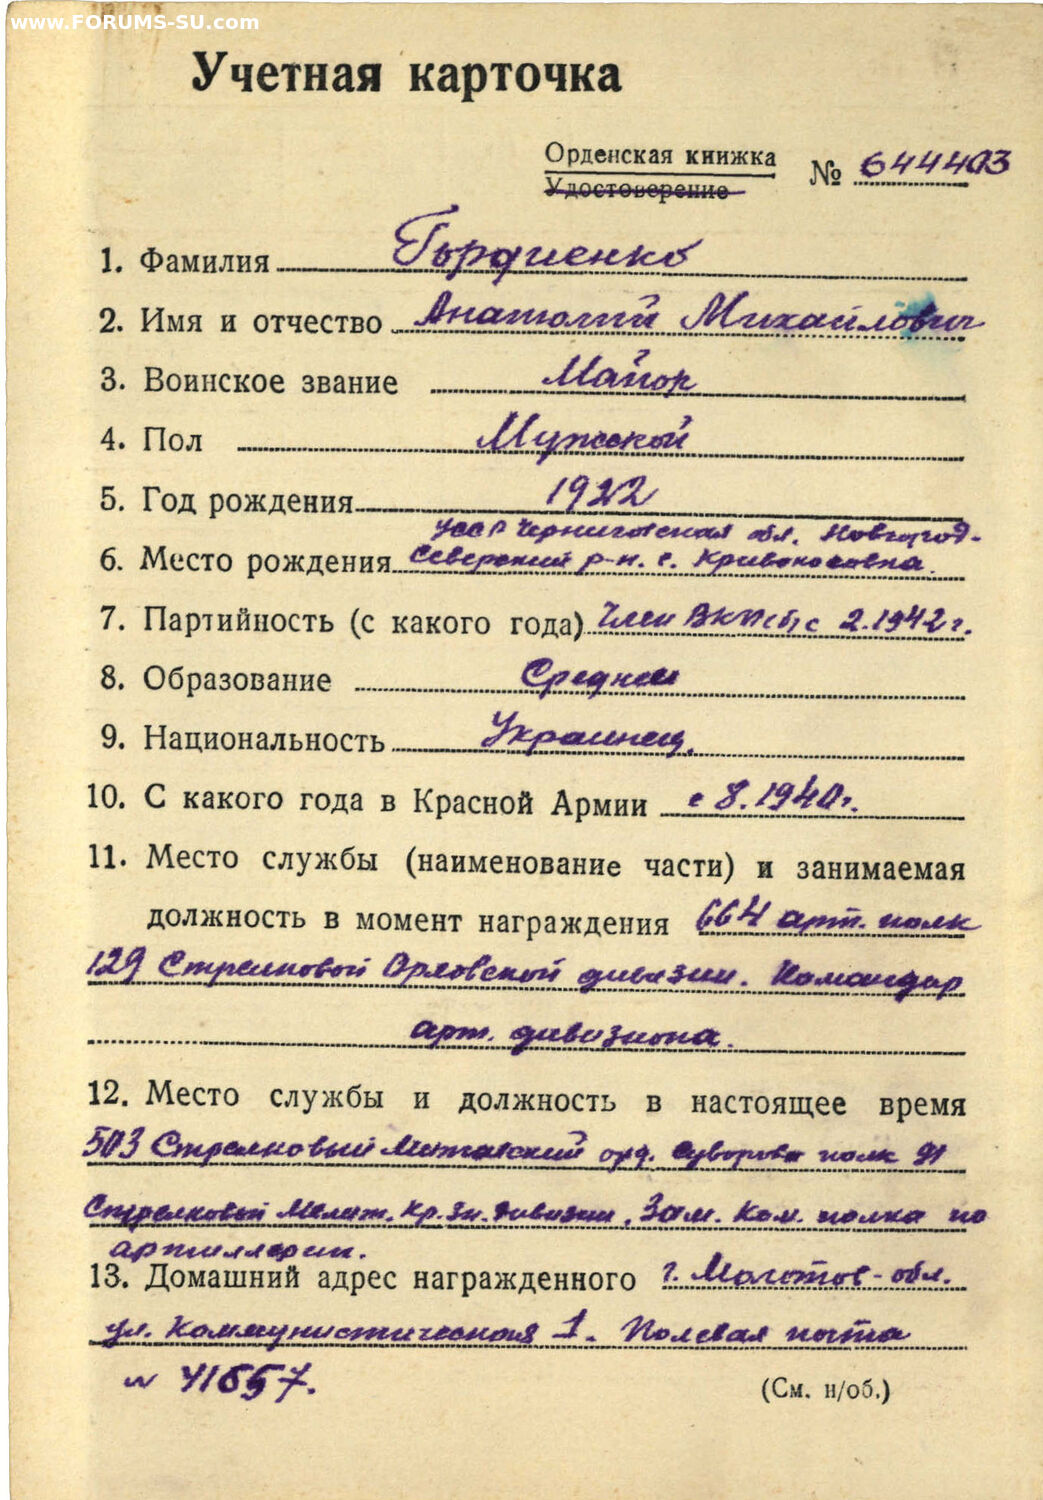 www.FORUMS-SU.com
Учетная карточка
Орденская книжка
Удостоверение
№ 644403
1. Фамилия Гордиенко
2. Имя и отчество Анатолий Михайлович
3. Воинское звание Майор
4. Пол Мужской
5. Год рождения 1922
УССР Черниговская обл. Новгород-
6. Место рождения Северский р-н. с. Кривоносовка.
7. Партийность (с какого года) Член ВКП(б) с 2.1942 г.
8. Образование Среднее
9. Национальность Украинец.
10. С какого года в Красной Армии с 8.1940 г.
11. Место службы (наименование части) и занимаемая
должность в момент награждения 664 арт. полк
129 Стрелковой Орловской дивизии. Командир
арт. дивизиона.
12. Место службы и должность в настоящее время
503 Стрелковый Митавский орд. Суворова полк 91
Стрелковой Мелит. Кр. Зн. дивизии. Зам. Ком. полка по
артиллерии.
13. Домашний адрес награжденного г. Молотов - обл.
ул. Коммунистическая 1. Полевая почта
(См. н/об.)